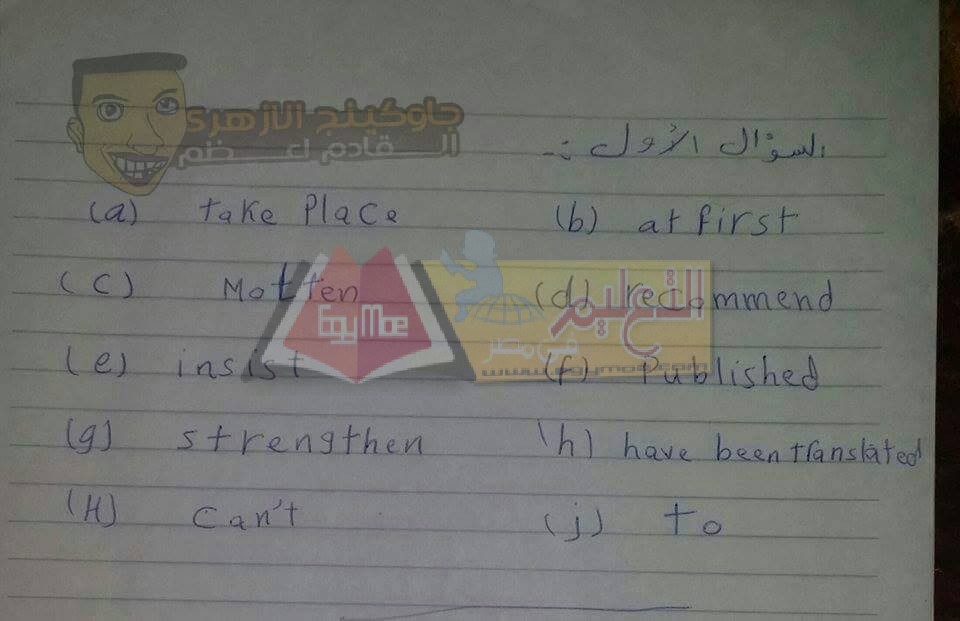 جاوكينج الأزهرى
القادم اعظم
السؤال الأول :-
(a) take place (b) at first
(c) Motten (d) recommend
EgyMoe التعليم في مصر
www.egymoe.com
(e) insist (f) Published
(g) strengthen (h) have been translated
(H) Can't (j) to